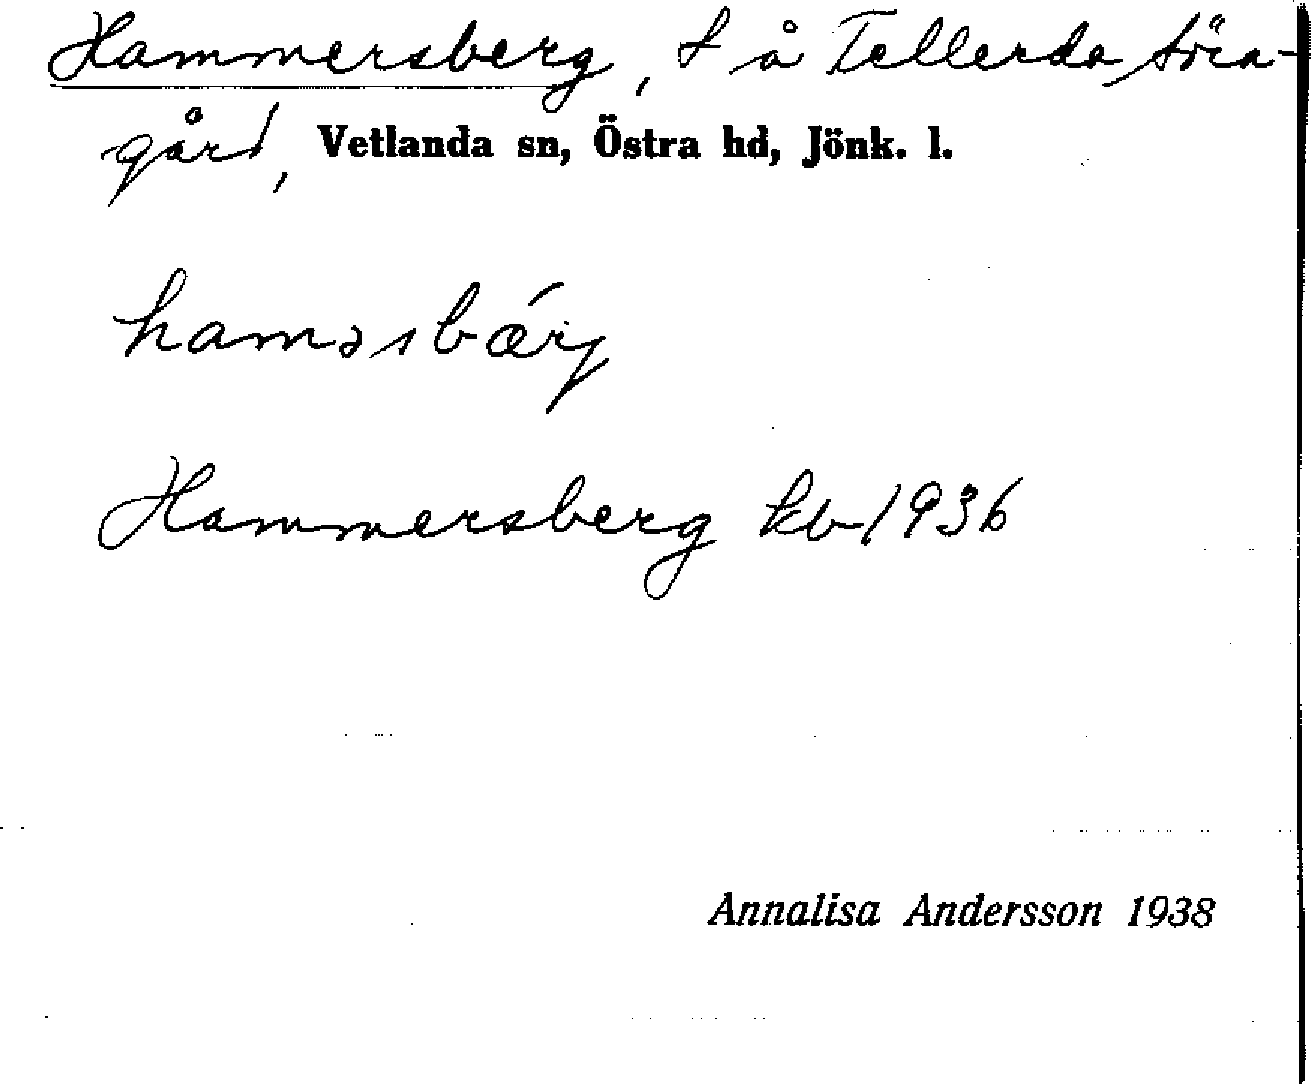 Hammersberg, t å Tellerda söra-
gård, Vetlanda sn, Östra hd, Jönk. l.
haməsbǽrj
Hammersberg kb 1936
Annalisa Andersson 1938